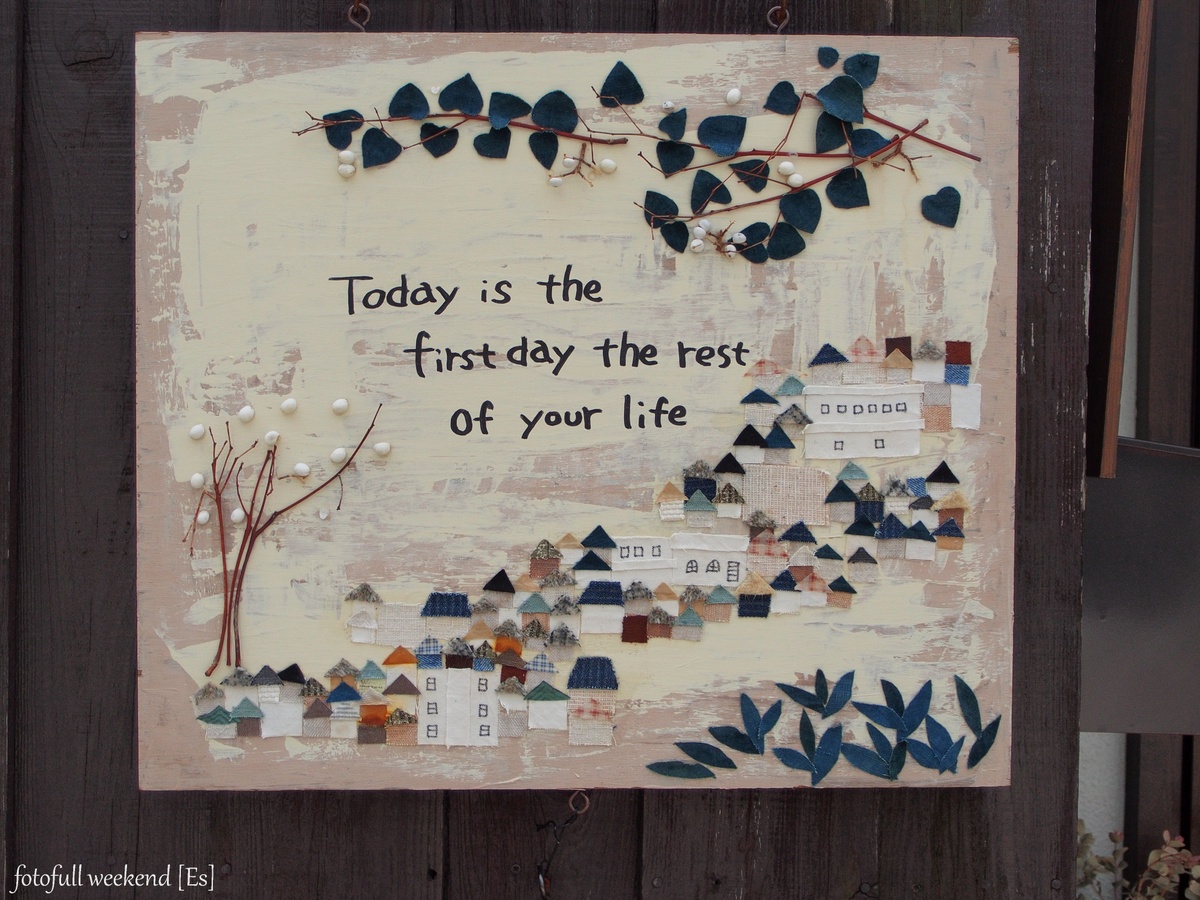 Today is the
first day the rest
of your life
fotofull weekend [Es]